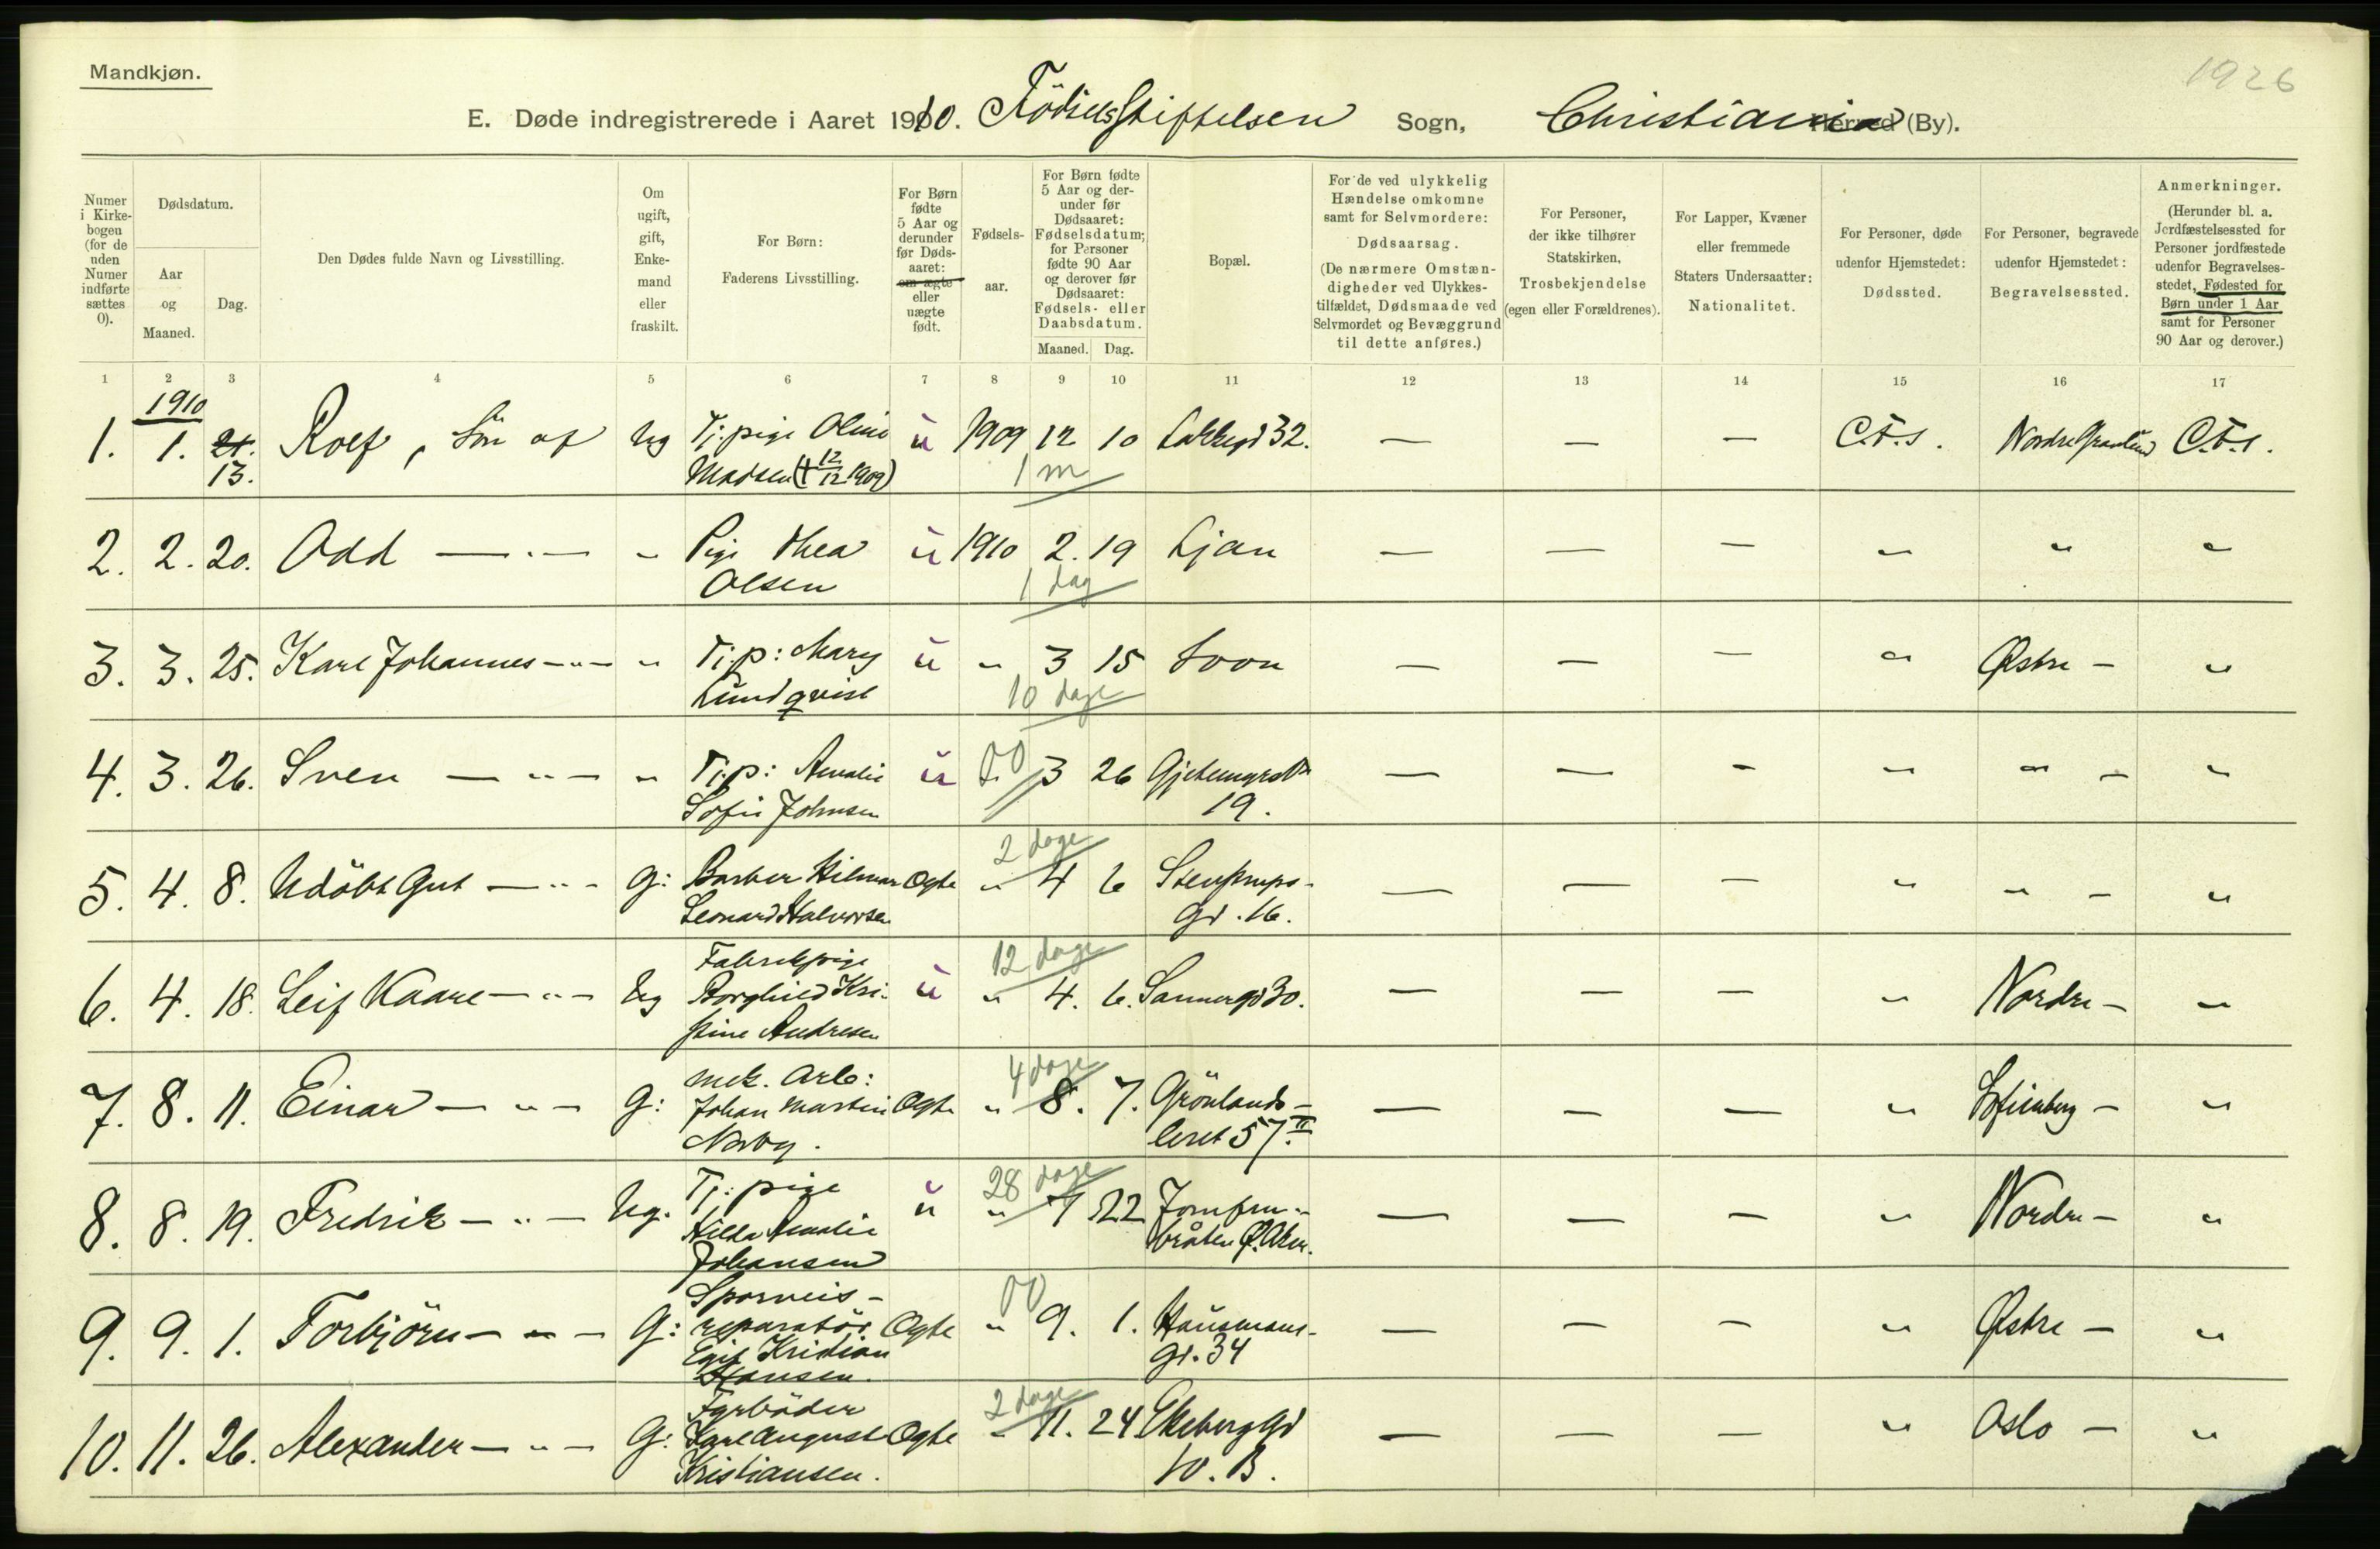 Mandkjøn.
1926
E. Døde indregistrerede i Aaret 1910. FödselsStiftelsen Sogn, Christiania Herred (By).
Numer i Kirkebogen (for de uden Numer indførte sættes 0).
Dødsdatum.
Aar og Maaned.
Dag.
Den Dødes fulde Navn og Livsstilling.
Om ugift, gift, Enkemand eller fraskilt.
For Børn: Faderens Livsstilling.
For Børn fødte 5 Aar og derunder før Dødsaaret: om ægte eller uægte født.
Fødselsaar.
For Børn fødte 5 Aar og derunder før Dødsaaret: Fødselsdatum; for Personer fødte 90 Aar og derover før Dødsaaret: Fødsels- eller Daabsdatum.
Maaned. Dag.
Bopæl.
For de ved ulykkelig Hændelse omkomne samt for Selvmordere: Dødsaarsag. (De nærmere Omstændigheder ved Ulykkestilfældet, Dødsmaade ved Selvmordet og Bevæggrund til dette anføres.)
For Personer, der ikke tilhører Statskirken, Trosbekjendelse (egen eller Forældrenes).
For Lapper, Kvæner eller fremmede Staters Undersaatter: Nationalitet.
For Personer, døde udenfor Hjemstedet: Dødssted.
For Personer, begravede udenfor Hjemstedet: Begravelsessted.
Anmerkninger. (Herunder bl. a. Jordfæstelsessted for Personer jordfæstede udenfor Begravelsesstedet, Fødested for Børn under 1 Aar samt for Personer 90 Aar og derover.)
1 2 3 4 5 6 7 8 9 10 11 12 13 14 15 16 17
1910
1. 1. 21. Rolf, Sön af Ug Tj: pige Oline ü 1909 12 10 Lakkegd 32. — — — C.F.S. Nordre Gravlund C.F.S.
13. Madsen († 12/12 1909) 1 m
2. 2. 20. Odd — " — " Pige Thea ü 1910 2. 19 Ljan — — — " " "
Olsen 1 dag
3. 3. 25. Karl Johannes — " — " Tj. p: Mary ü " 3 15 Soon — — — " Østre — "
Lundqvist 10 dage
4. 3. 26. Sven — " — " Tj. p: Amalie ü " 00 3 26 — — — " " — "
Sofie Johnsen 19.
2 dage
5. 4. 8. Udöbt Gut — " — G: Barber Hilmar Ogte " 4 6 Stenstrups- — — — " " — "
Leonard Halvorsen Gd. 16.
Fabrikpige 12 dage
6. 4. 18. Leif Kaare — " — Ug Borghild Kri- ü " 4. 6. Sannergd 30. — — — " Nordre — "
stine Andresen
mek. Arb: 4 dage
7. 8. 11. Einar — " — G: Johan Martin Ogte " 8. 7. Grönlands- — — — " Sofienberg — "
Norby. leret 57. II
Tj: pige 28 dage
8. 8. 19. Fredrik — " — Ug. Hilda Amalie ü " 7 22 Jomfru- — — — " Nordre — "
Johansen bråten Ø. Aker.
Sporveis- 00
9. 9. 1. Torbjörn — " — G: reparatör Ogte " 9. 1. Hausmans- — — — " Østre — "
Egil Kristian gd. 34
Hansen.
Fyrböder 2 dage
10. 11. 26. Alexander — " — G: Karl August Ogte " 11. 24 Ekeberg Gd — — — " Oslo — "
Kristiansen. 10. B.